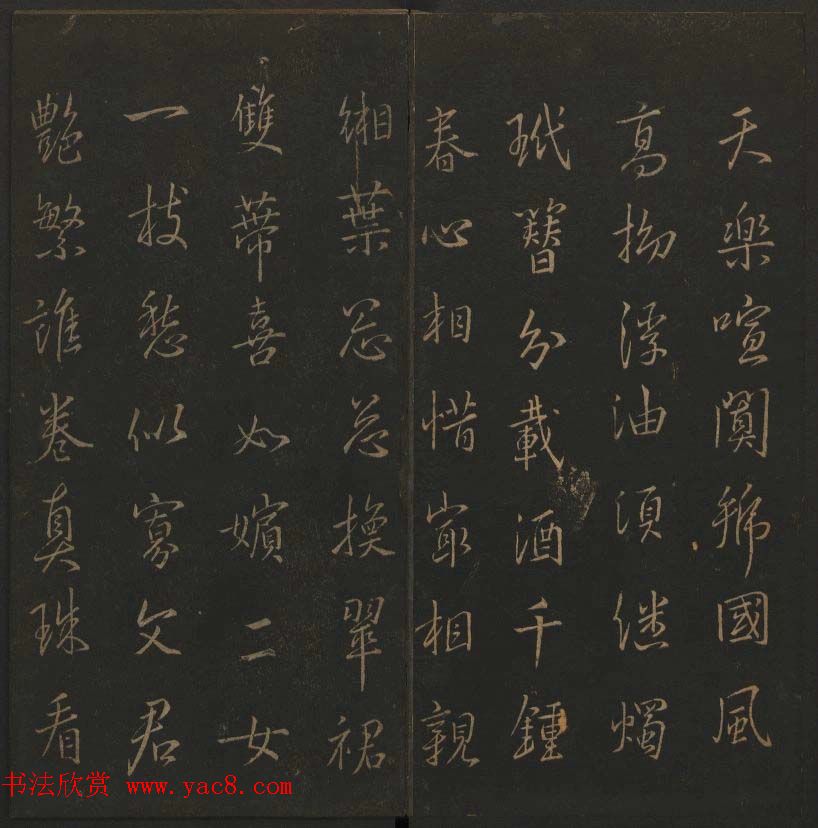 天樂喧闐國風
高浮油湏継燭
玳簪分載酒千鍾
春心相惜最相親
緗葉忩忩換翠裙
雙蒂喜如嬪二女
一枝愁似寡文君
艷繁誰卷真珠看
书法欣赏 www.yac8.com